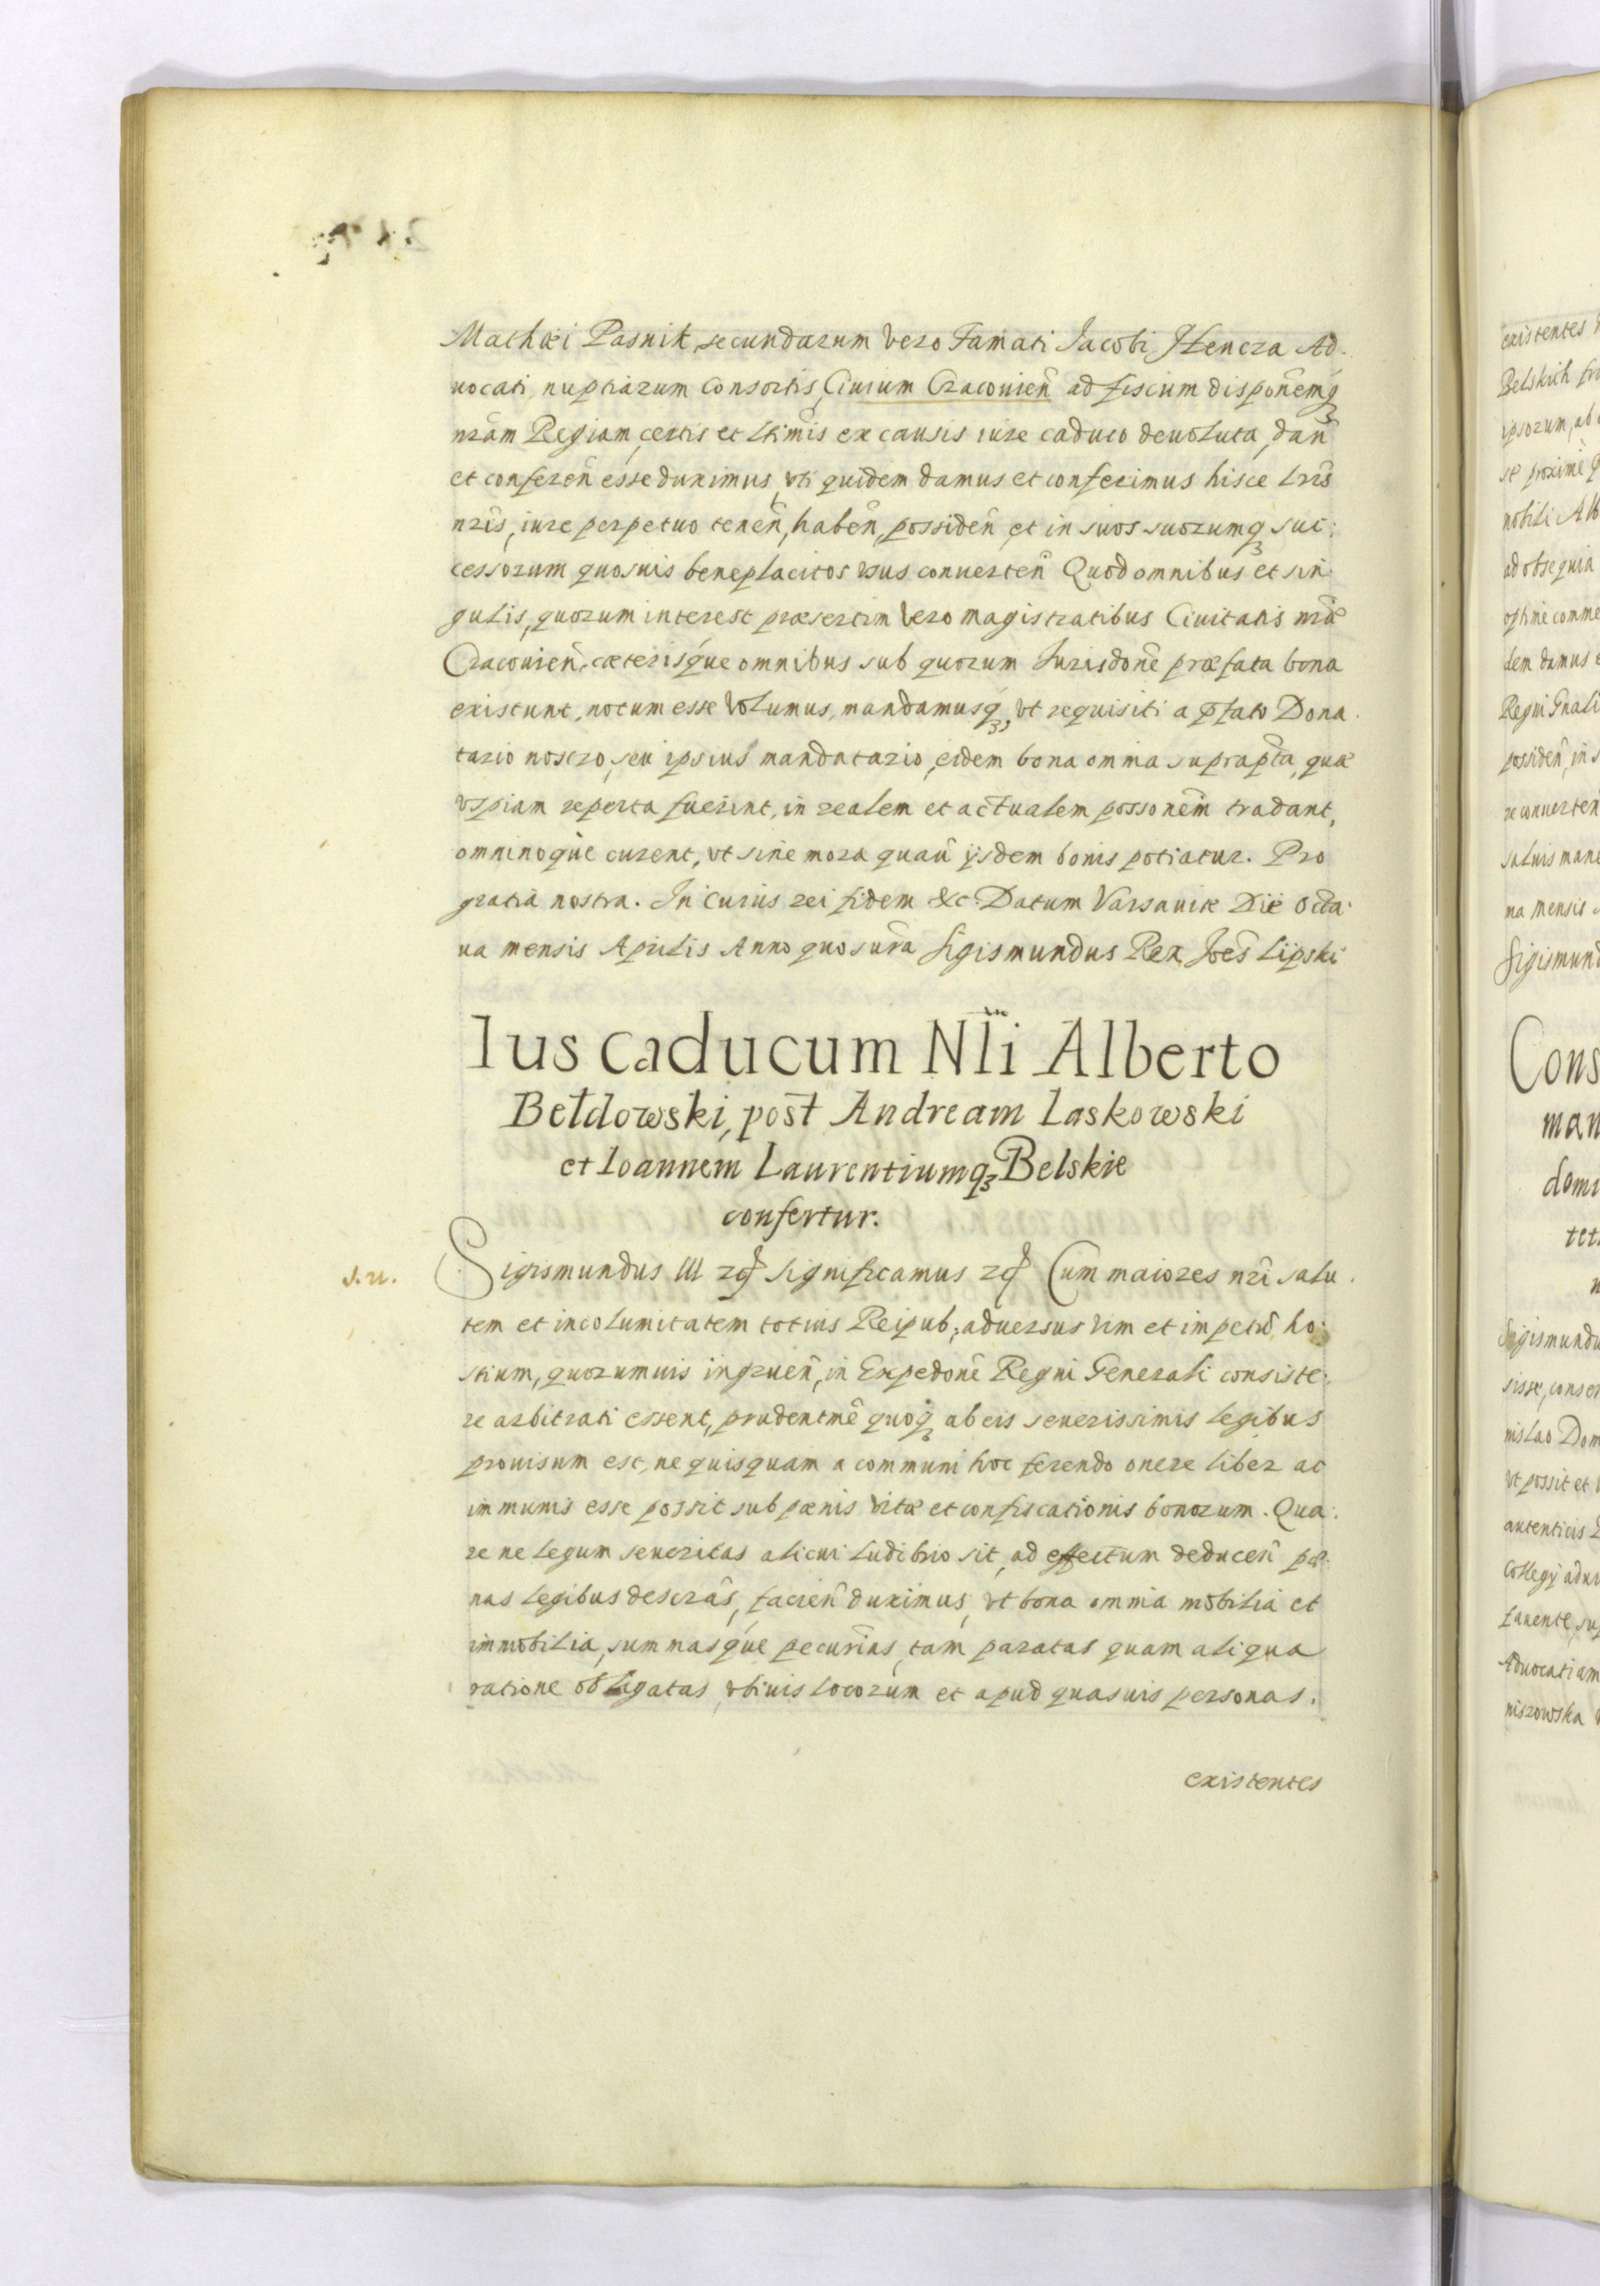 Mathæi Pasnik, secundarum vero Famati Jacobi Hencza Ad-
uocati, nuptiarum Consortis, Ciuium Cracouien̄ ad fiscum disponēmq3
nrām Regiam, certis et ltimis ex causis iure caduco deuoluta, dan̄
et conferen̄ esse duximus, vti quidem damus et conferimus hisce lrīs
nrīs, iure perpetuo tenen̄, haben̄, possiden̄ et in suos suorumq3 suc:
cessorum quosuis beneplacitos vsus conuerten̄ Quod omnibus et sin:
gulis, quorum interest præsertim vero magistratibus Ciuitatis nrǣ
Cracouien̄, cæterisque omnibus sub quorum Jurisdonē præfata bona
existunt, notum esse volumus, mandamusq3, vt requisiti a p̄fato Dona.
tario nostro, seu ipsius mandatario, eidem bona omnia suprapta, quæ
vspiam reperta fuerint, in realem et actualem possonēm tradant,
omninoque curent, vt sine mora quaū ijsdem bonis potiatur. Pro
gratia nostra. In Cuius rei fidem &c Datum Varsauiæ Die Octa:
ua mensis Aprilis Anno quo sup̄ra Sigismundus Rex Joēs Lipski
Ius caducum Nli Alberto
Bełdowski, post Andream Laskowski
et Ioannem Laurentiumq3 Belskie
confertur.
S. R.
Sigismundus III etc Significamus etc Cum maiores nrī salu.
tem et incolumitatem totius Reipub; aduersus vim et impetū, ho:
stium, quorumuis ingruen̄, in Expedonē Regni Generali consiste:
re arbitrati essent, prudentmē quoq3 ab eis seuerissimis legibus
prouisum est, ne quisquam a communi hoc ferendo onere liber ac
immunis esse possit sub pænis vitæ et confiscationis bonorum. Qua:
re ne legum seueritas alicui ludibrio sit, ad effectum deducen̄ pæ:
nas legibus descrās, facien̄ duximus, vt bona omnia mobilia et
immobilia, summasque pecunīas, tam paratas quam aliqua
ratione obligatas, vbiuis locorum et apud quasuis personas,
existentes